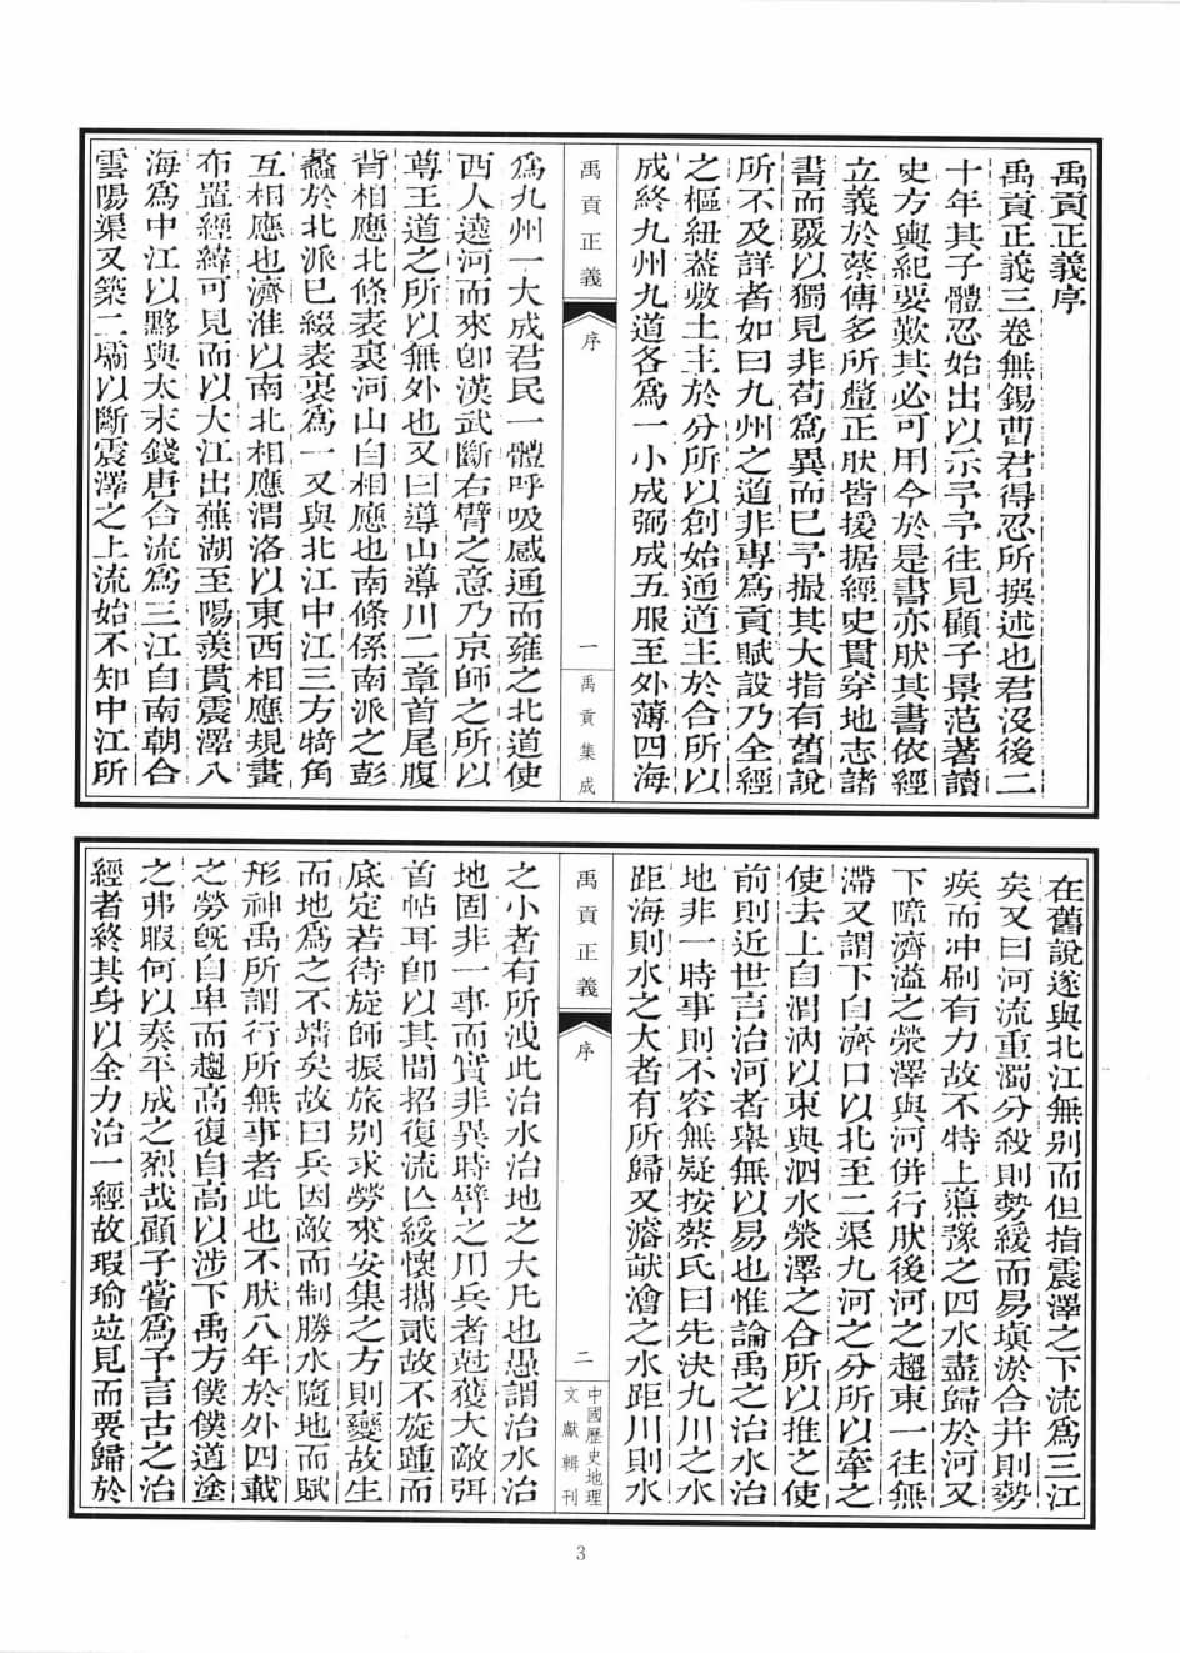 禹貢正義序
禹貢正義三卷無錫曹君得忍所撰述也君沒後二
十年其子體忍始出以示予予往見顧子景范著讀
史方輿紀要歎其必可用今於是書亦肰其書依經
立義於蔡傳多所糾正肰皆援据經史貫穿地志諸
書而覈以獨見非苟爲異而已予撮其大指有舊說
所不及詳者如曰九州之道非專爲貢賦設乃全經
之樞紐葢敷土主於分所以創始通道主於合所以
成終九州九道各爲一小成弼成五服至外薄四海
禹貢正義
序
一
禹貢集成
爲九州一大成君民一體呼吸感通而雍之北道使
西人遶河而來卽漢武斷右臂之意乃京師之所以
尊王道之所以無外也又曰導山導川二章首尾腹
背相應北條表裏河山自相應也南條係南派之彭
蠡於北派巳綴表裏爲一又與北江中江三方犄角
互相應也濟淮以南北相應渭洛以東西相應規畫
布置經緯可見而以大江出蕪湖至陽羨貫震澤入
海爲中江以黟與太末錢唐合流爲三江自南朝合
雲陽渠又築二壩以斷震澤之上流始不知中江所
在舊說遂與北江無別而但指震澤之下流爲三江
矣又曰河流重濁分殺則勢緩而易塡淤合并則勢
疾而冲刷有力故不特上蕅豫之四水盡歸於河又
下障濟溢之滎澤與河併行肰後河之趨東一往無
滯又謂下自濟口以北至二渠九河之分所以牽之
使去上自渭汭以東與泗水滎澤之合所以推之使
前則近世言治河者舉無以易也惟論禹之治水治
地非一時事則不容無疑按蔡氏曰先決九川之水
距海則水之大者有所歸又濬畎澮之水距川則水
禹貢正義
序
二
中國歷史地理
文獻輯刊
之小者有所洩此治水治地之大凡也愚謂治水治
地固非一事而實非異時譬之用兵者茍獲大敵弭
首帖耳卽以其間招復流亾綏懷攜貳故不旋踵而
底定若待旋師振旅別求勞來安集之方則變故生
而地爲之不靖矣故曰兵因敵而制勝水隨地而賦
形神禹所謂行所無事者此也不肰八年於外四載
之勞旣自卑而趨高復自高以涉下禹方僕僕道塗
之弗暇何以奏平成之烈哉顧子嘗爲予言古之治
經者終其身以全力治一經故瑕瑜竝見而要歸於
3